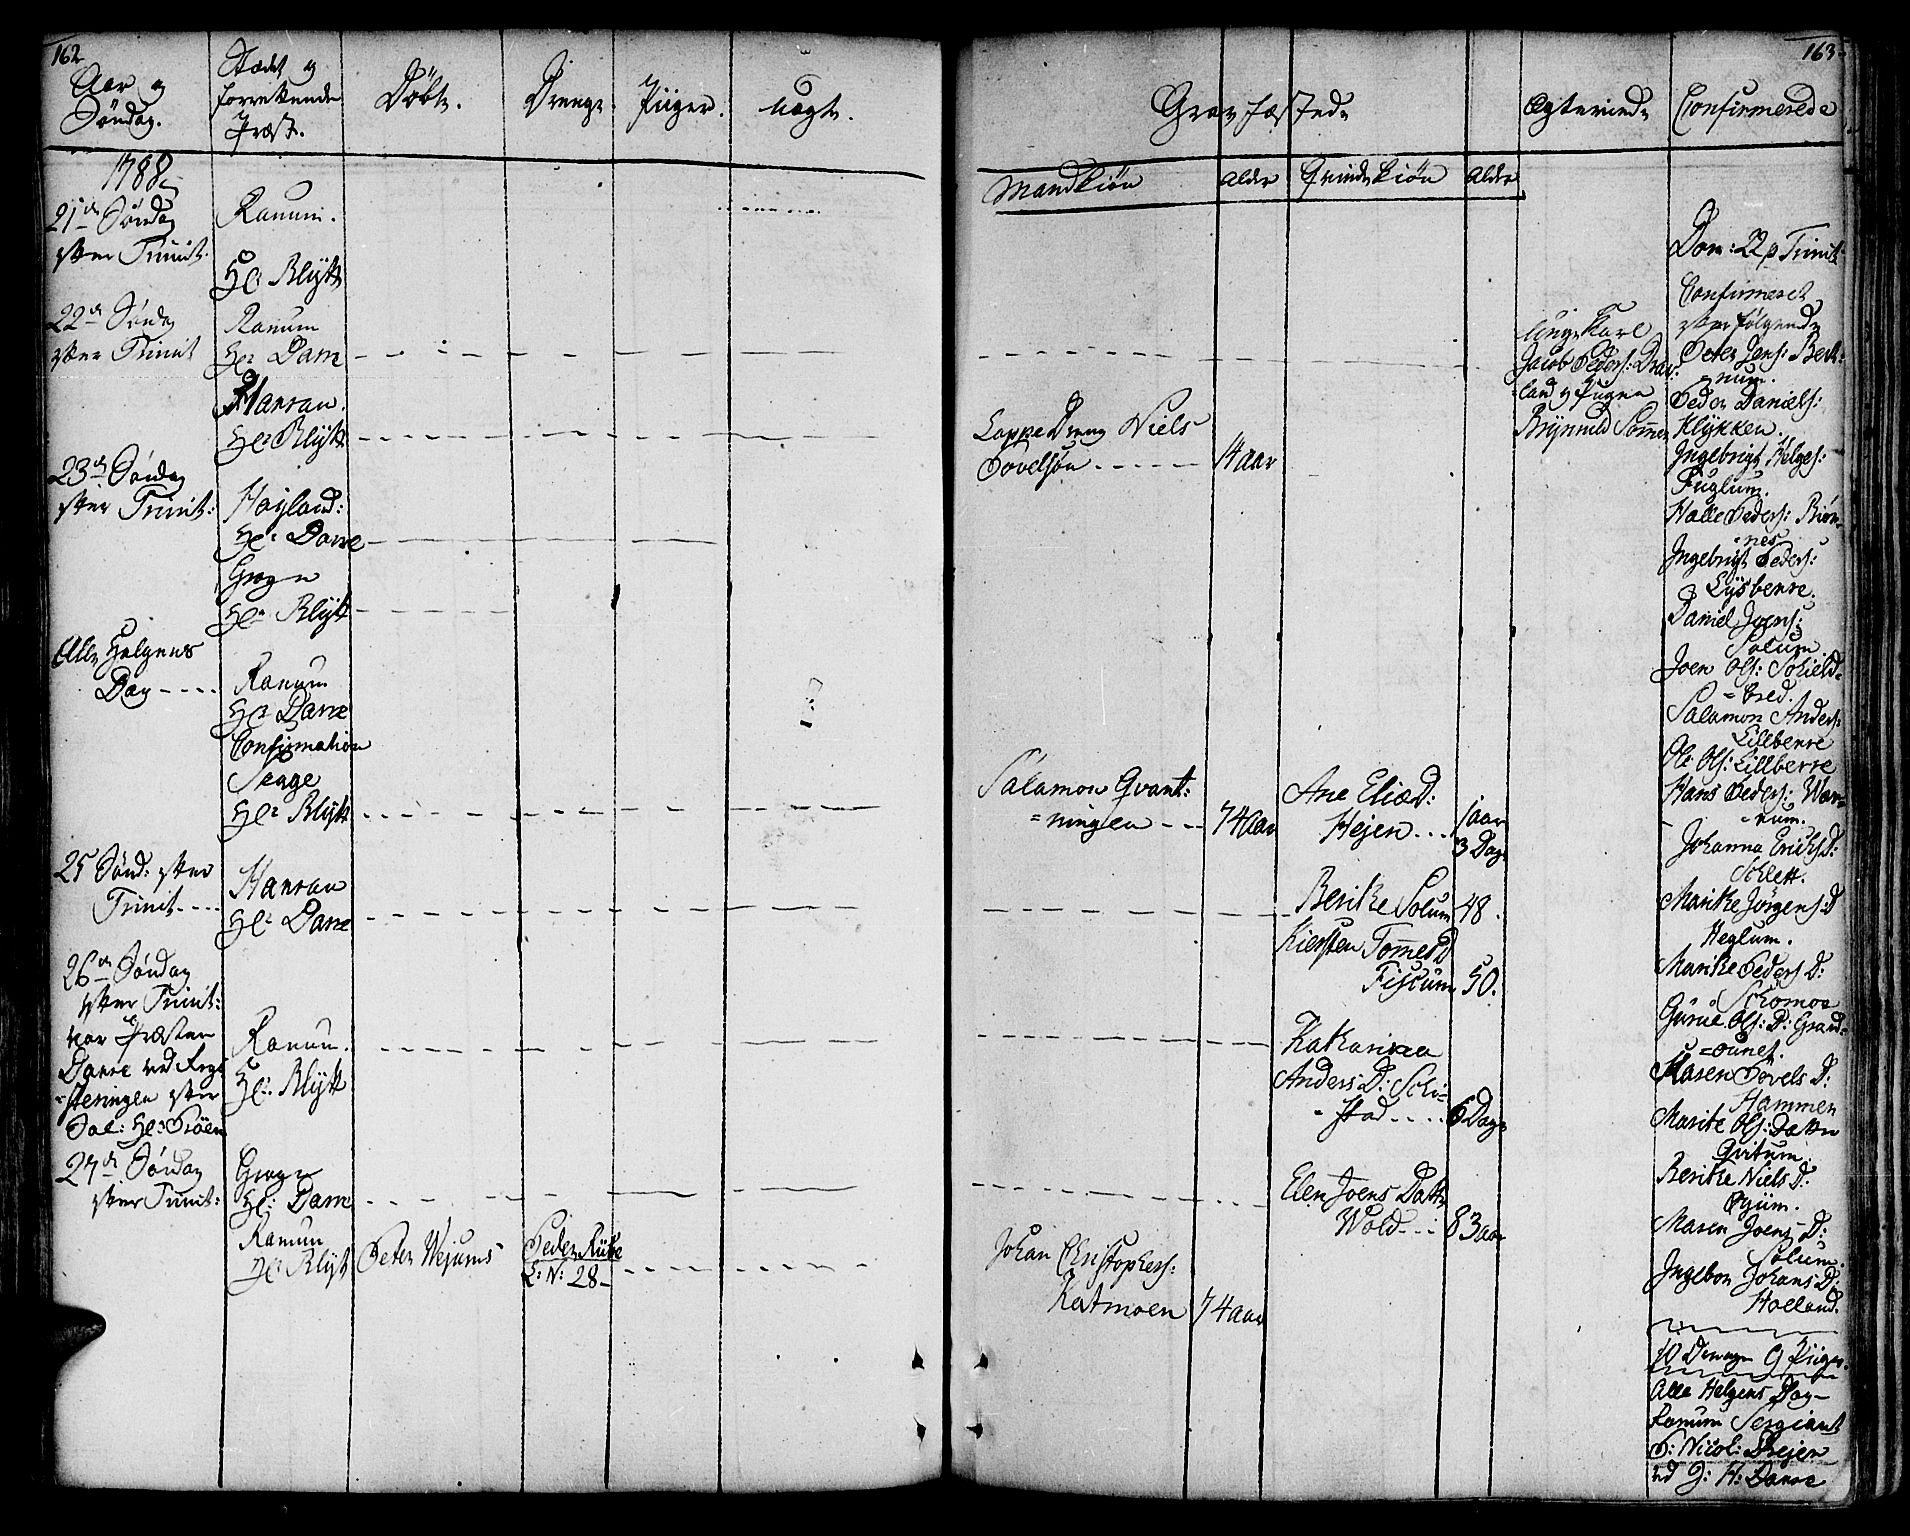 162
Aar og
Søndag.
Stædet og
forrettende
Præst.
Döbte.
Drenge.
Piiger.
uægte.
1788
21de Søndag
efter Trinit.
Ranum.
Hr. Blÿtt
22de Sønda
efter Trinit
Ranum
Hr. Dane
Harran.
Hr. Blÿtt
23de Søndag
efter Trinit:
Høyland:
Hr: Dane
Grogn
Hr. Blÿtt
Alle Helgens
Dag
Ranum
Hr. Dane
Confirmation
Seage
Hr. Blÿtt
25 Sønd: efter
Trinit.
Harran
Hr. Dane
26de Søndag
efter Trinit:
var Præsten
Dane ved Regi
steringen efter
Sal: Hr: Pröen
Ranum.
Hr: Blÿtt
27de Søndag
efter Trinit:
Grogn
Hr. Dane
Ranum
Hr. Blÿt
Peter Wejums
Peder Rübe
L: N: 28
163
Græs fæstede
Mandkiön
alder
Qvinde kiön
alder
Lappe Dreng Niels
Povelsön 14 aar
Salamon Qvant:
=ningen 74 aar
Ane Eliæ D:
Hejen 1 aar
3 Dage
Beritke Solum 48.
Kiersten Tommes D
Fiscum 50.
Katharina
Anders D: Sche=
stad 6 Dage
Elen Joens Datt
Wold 83 aar
Johan Christophers:
Katmoen 74 aar
Ægteviede
Unge Karl
Jacob Peders: Drav
land og Pigen
Brÿnnild Tommes
Confirmerede
Dom: 22 p Trinit:
Confirmeret
efterfølgende
Peter Jens: Berk:
=num.
Peder Daniels:
Klÿkken.
Ingebrigt Helges:
Fuglum.
Halle Peders: Biör
=nes
Ingebrigt Peders:
Lÿsbenre.
Daniel Joens:
Solum.
Joen Ols: Schield
=bred.
Salamon Anders:
Lillbenre
Ole Ols: Lillberre
Hans Peders: Wær=
=num.
Johanna Erichs D:
Schlett.
Maritke Jörgens D
Heglum.
Maritke Peders D:
Schomoe
Gürue Ols: D: Grand=
=ounet.
Maren Povels D:
Hammer
Maritke Ols: Datter
Qvitum.
Beritke Niels D:
Øÿum.
Maren Joens D:
Solum.
Ingebor Johans D:
Holland.
10 Drenge 9 Piiger.
Alle Helgens Dag
Ranum Sergiant
P: Nicol: Shejer
ved J: H: Danre